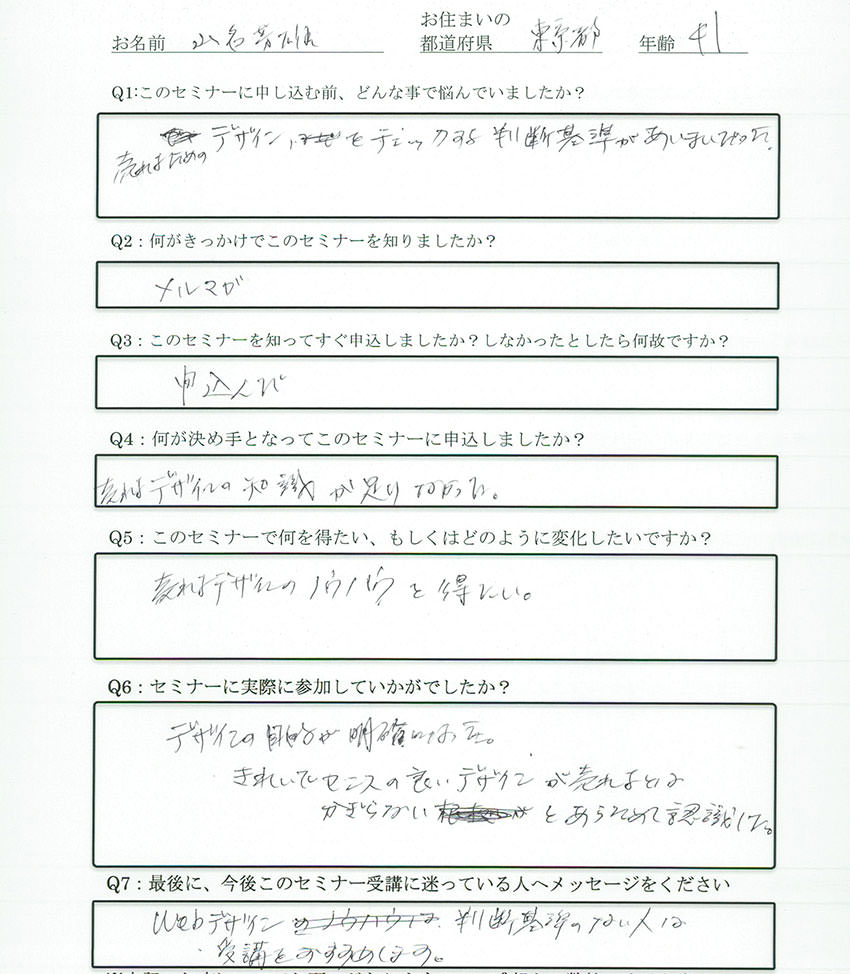 お名前 山名芳雄 お住まいの都道府県 東京都 年齢 41
Q1:このセミナーに申し込む前、どんな事で悩んでいましたか？
売れるための デザイン をチェックする 判断基準があいまいだった。
Q2：何がきっかけでこのセミナーを知りましたか？
メルマガ
Q3：このセミナーを知ってすぐ申込しましたか？しなかったとしたら何故ですか？
申込んだ
Q4：何が決め手となってこのセミナーに申込しましたか？
売れるデザインの知識が足りなかった。
Q5：このセミナーで何を得たい、もしくはどのように変化したいですか？
売れるデザインのノウハウを得たい。
Q6：セミナーに実際に参加していかがでしたか？
デザインの目的が明確になった。
きれいでセンスの良いデザインが売れるとは
かぎらない とあらためて認識した。
Q7：最後に、今後このセミナー受講に迷っている人へメッセージをください
Webデザイン のノウハウは 判断基準のない人は
受講をおすすめします。